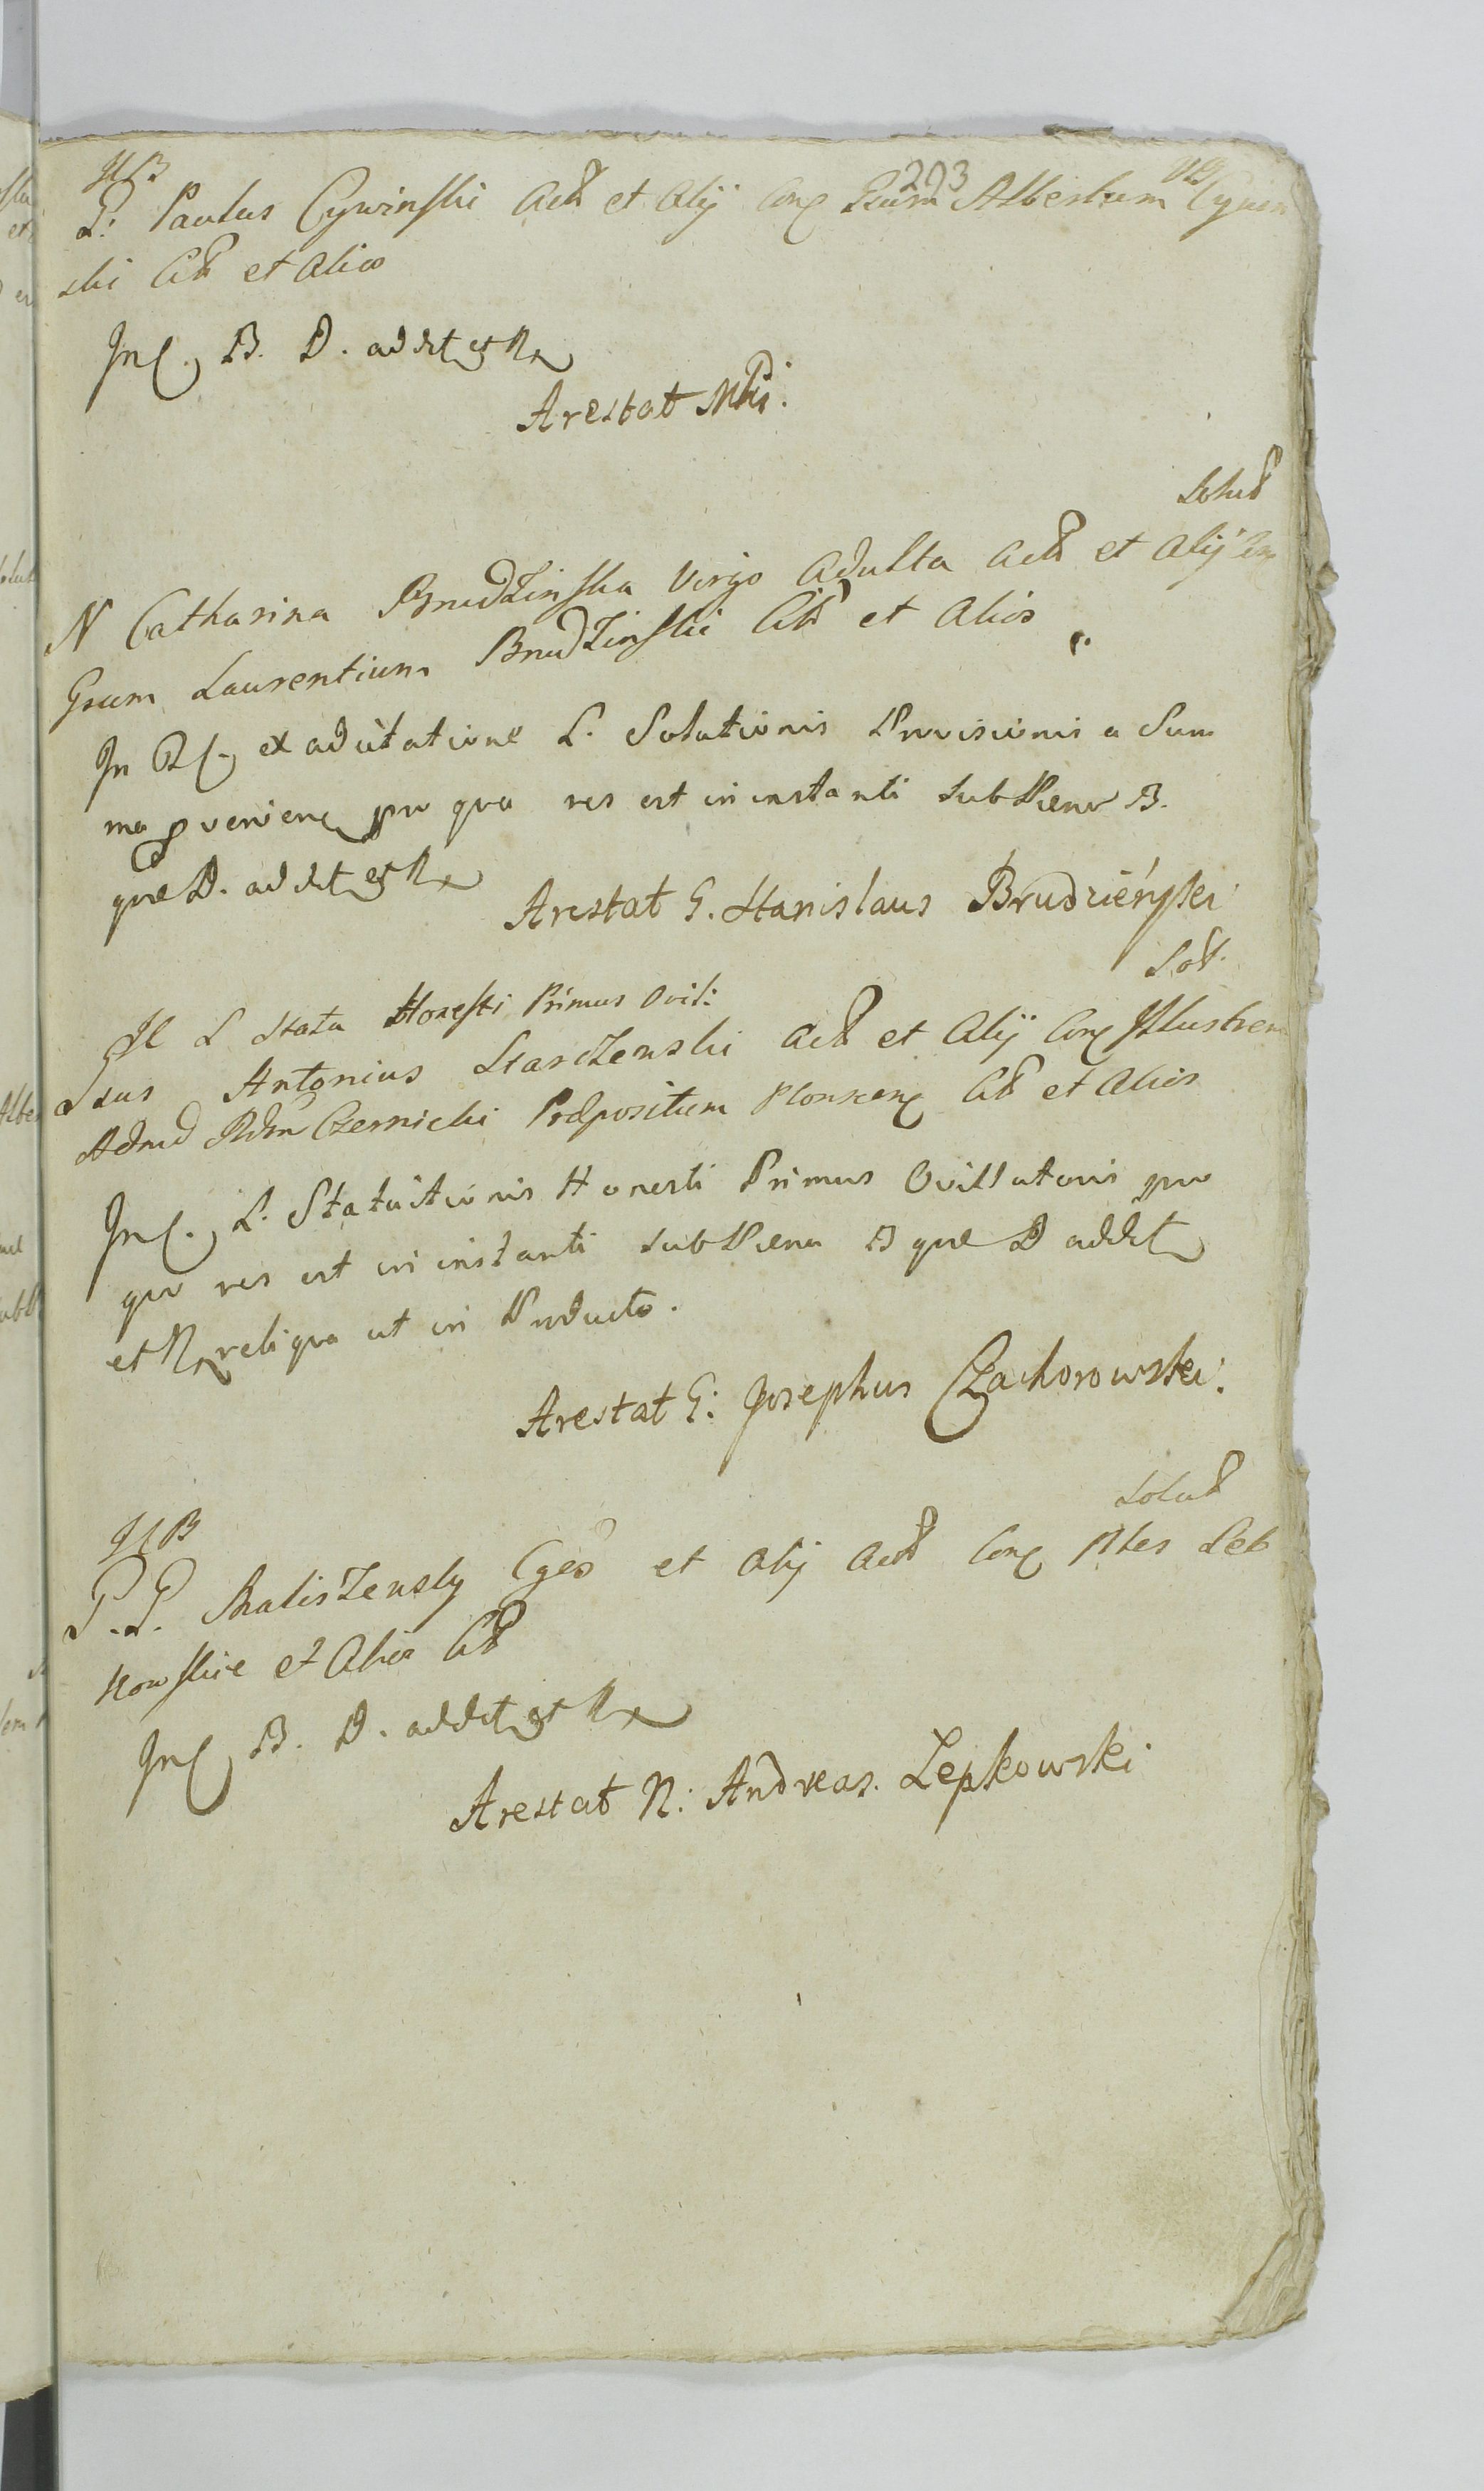 203
G: Paulus Cywinski Act et Alij Conc Grum Albertum Cywin
ski Cit et Alios
Inc. B. D. addit et R
Arestat Mtus.
Solut
N Catharina Brudzinska Virgo Adulta Act et Alij
Grum Laurentium Brudzinski Cit et Alios
In ex adcitatione L. Solutionis Provisionis a Sum
ma proveniens pro qua res est in instanti sub Pena B.
que D. addit et R
Arestat G. Stanislaus Brudzieński
Sol.
Il L Statu Honesti Primus Ovil:
sus Antonius Starczenski Act et Alij Conc Illustrem
Admd Rdm Czernicki Praepositum Plonscen Cit et Alios
Inc. L. Statuitionis Honesti Primus Ovillatoris pro
quo res est in instanti sub Pena B que D addit
et R reliqua ut in Producto.
Arestat G: Josephus Czachorowski.
Solut
Il B
P.P. Maliszensky et Alij Act Conc Nles Lep
kowskie et Alios Cit
Inc B. D. addit et R
Arestat N: Andreas. Lepkowski